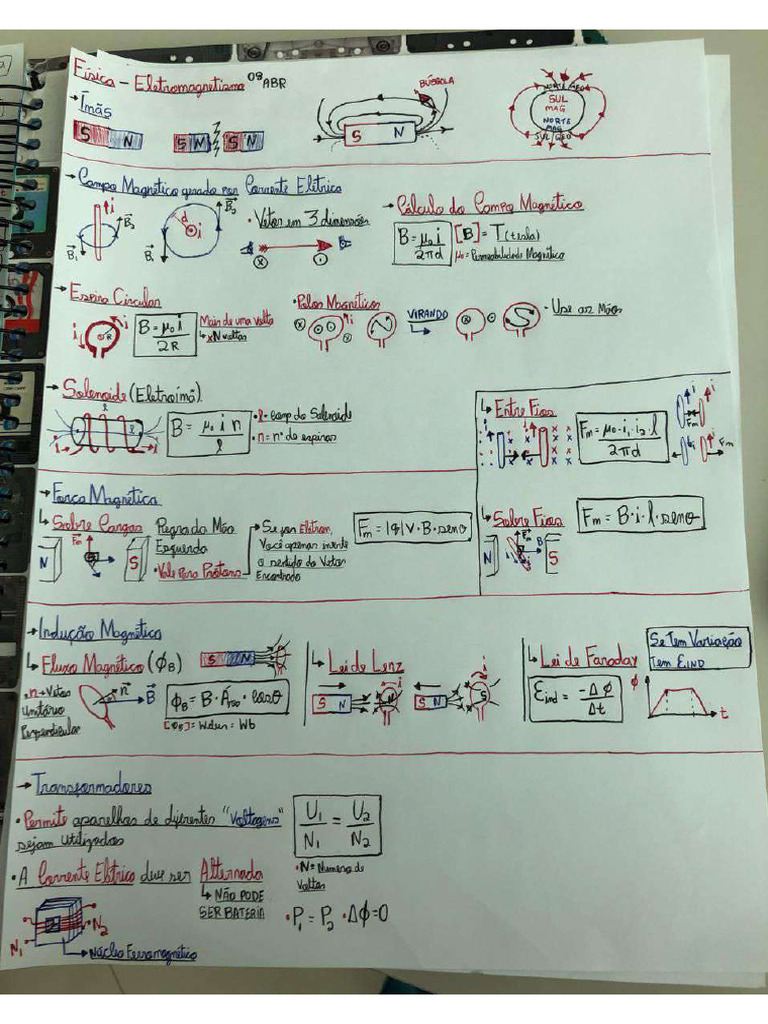 Física - Eletromagnetismo 08 ABR
→ Ímãs
S N
S N S N
BÚSSOLA
S N
NORTE GEO
SUL MAG
NORTE MAG
SUL GEO
→ Campo Magnético gerado por Corrente Elétrica
i B₂ B₁
d i B₂ B₁
• Vetor em 3 dimensões
→ Cálculo do Campo Magnético
B = μ₀ i / 2πd
[B] = T (tesla)
μ₀ = Permeabilidade Magnética
→ Espira Circular
i R i
B = μ₀ i / 2R
Mais de uma volta
↳ xN voltas
• Polos Magnéticos
i N
VIRANDO
S
• Use as Mãos
→ Solenoide (Eletroímã)
l
i i
B = μ₀ i n / l
• l = comp do Solenoide
• n = nº de espiras
↳ Entre Fios
Fm = μ₀ · i₁ · i₂ · l / 2πd
i i Fm
i i Fm
→ Força Magnética
↳ Sobre Cargas
N Fm S
Regra da Mão
Esquerda
• Vale para Prótons
→ Se for Elétron,
Você apenas inverte
o sentido do Vetor
Encontrado
Fm = |q| V · B · senθ
↳ Sobre Fios
N Fm B S
Fm = B · i · l · senθ
→ Indução Magnética
↳ Fluxo Magnético (ϕB)
S N
• n → Vetor
Unitário
Perpendicular
n B
ϕB = B · Área · cosθ
[ϕB] = Weber = Wb
↳ Lei de Lenz
S N i N
S N i S
↳ Lei de Faraday
Eind = -Δϕ / Δt
Se Tem Variação
Tem EIND
ϕ
t
→ Transformadores
• Permite aparelhos de diferentes "Voltagens"
sejam utilizados
U₁ / N₁ = U₂ / N₂
• N = Número de
Voltas
• A Corrente Elétrica deve ser Alternada
↳ NÃO PODE
SER BATERIA
• P₁ = P₂ · Δϕ = 0
N₁ N₂
→ Núcleo Ferromagnético